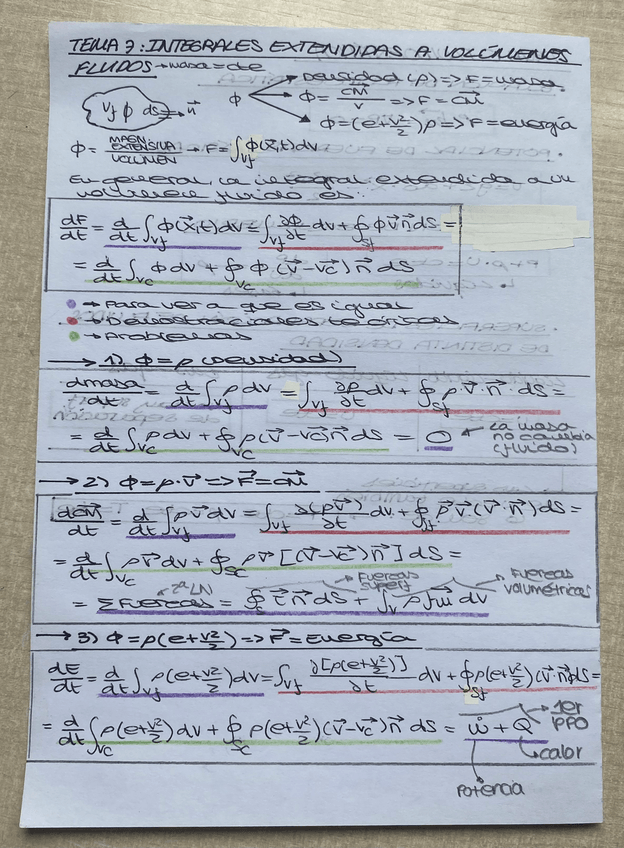 TEMA 7: INTEGRALES EXTENDIDAS A VOLÚMENES
FLUIDOS → masa = cte
Vf φ ds → n⃗
φ → Densidad (ρ) => F = masa
φ = CM⃗/V => F = CM⃗
φ = (e+v²/2)ρ => F = energía
φ = MAGN. EXTENSIVA/VOLUMEN → F = ∫_Vf φ(x⃗,t)dv
En general, la integral extendida a un
volumen fluido es:
dF/dt = d/dt ∫_Vf φ(x⃗,t)dv = ∫_Vf ∂φ/∂t dv + ∮_Sf φ v⃗ n⃗ dS =
= d/dt ∫_Vc φ dv + ∮_Vc φ (v⃗ - v⃗c) n⃗ dS
• → Para ver a que es igual
• → Demostraciones teóricas
• → Problemas
→ 1) φ = ρ (densidad)
dmasa/dt = d/dt ∫_Vf ρ dv = ∫_Vf ∂ρ/∂t dv + ∮_Sf ρ · v⃗ · n⃗ · dS =
= d/dt ∫_Vc ρ dv + ∮_Sc ρ (v⃗ - v⃗c) n⃗ dS = 0 ← La masa
no cambia
(fluido)
→ 2) φ = ρ · v⃗ => F⃗ = CM⃗
dCM⃗/dt = d/dt ∫_Vf ρ v⃗ dv = ∫_Vf ∂(ρv⃗)/∂t dv + ∮_Sf ρ v⃗ (v⃗ · n⃗) dS =
= d/dt ∫_Vc ρ v⃗ dv + ∮_Sc ρ v⃗ [(v⃗ - v⃗c) n⃗] dS =
2ª LN → Fuerzas superf → Fuerzas volumétricas
= Σ Fuerzas = ∮_S τ⃗ n⃗ dS + ∫_V ρ f⃗m dv
→ 3) φ = ρ(e+v²/2) => F⃗ = Energía
dE/dt = d/dt ∫_Vf ρ(e+v²/2) dv = ∫_Vf ∂[ρ(e+v²/2)]/∂t dv + ∮_Sf ρ(e+v²/2)(v⃗ · n⃗)dS =
= d/dt ∫_Vc ρ(e+v²/2) dv + ∮_Sc ρ(e+v²/2)(v⃗ - v⃗c) n⃗ dS = ẇ + Q̇ → 1er PPO
calor
Potencia